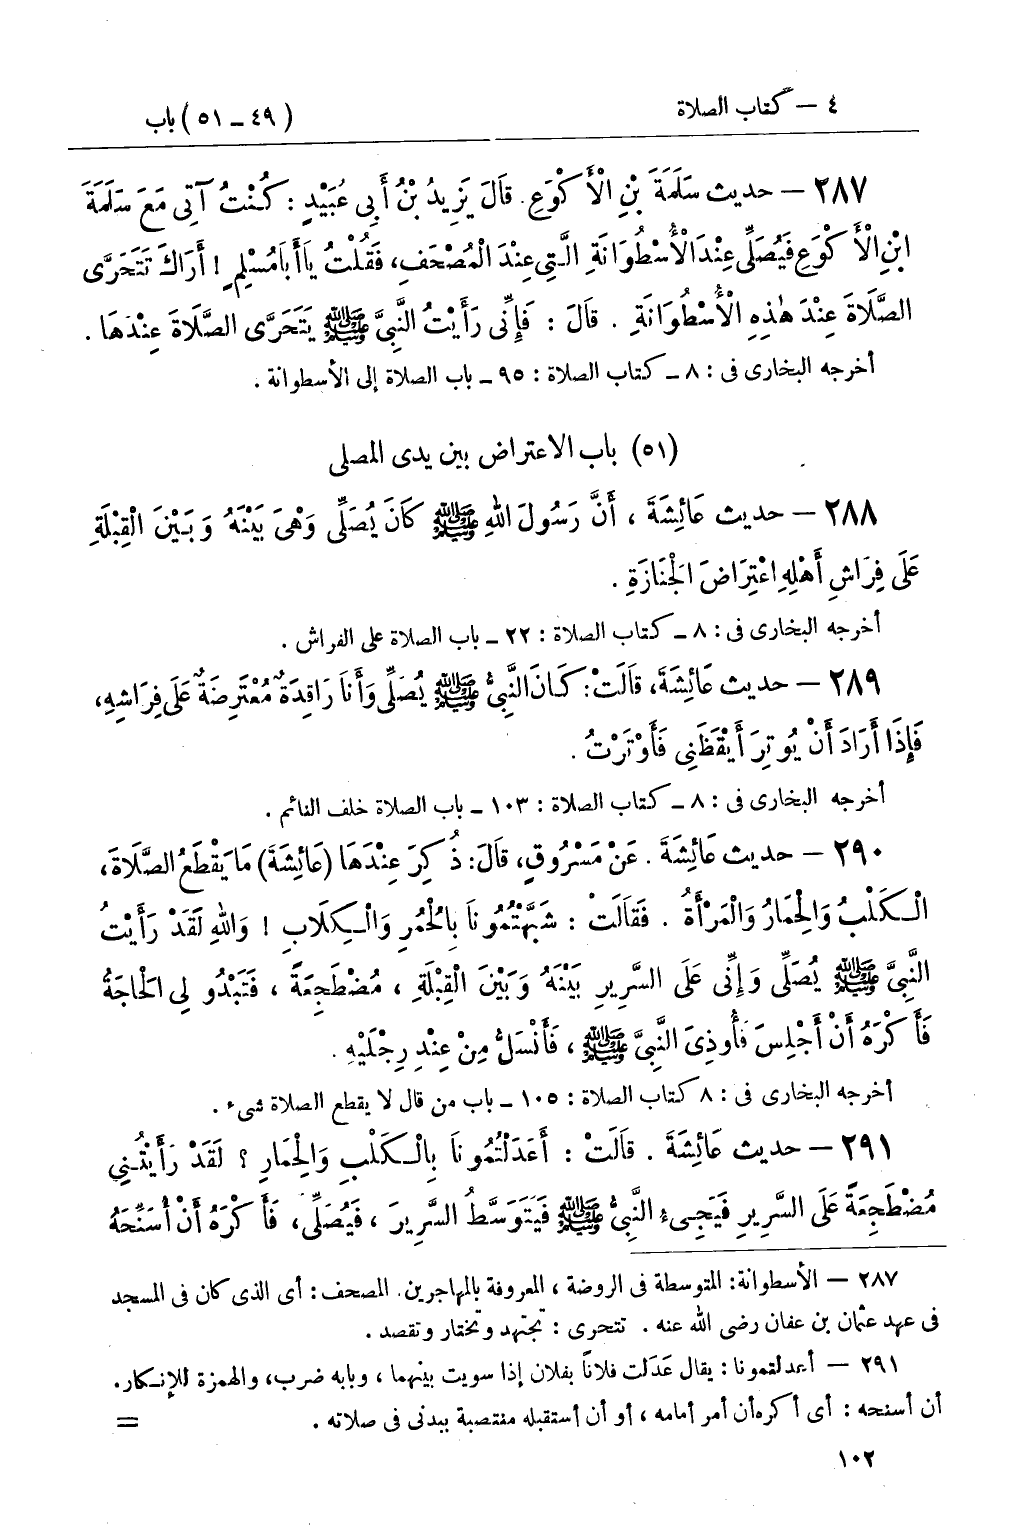 ٤ – كتاب الصلاة
(٤٩ – ٥١) باب
٢٨٧ – حديث سَلَمَةَ بْنِ الْأَكْوَعِ. قَالَ يَزِيدُ بْنُ أَبِي عُبَيْدٍ : كُنْتُ آتِي مَعَ سَلَمَةَ
ابْنِ الْأَكْوَعِ فَيُصَلِّي عِنْدَ الْأُسْطُوَانَةِ الَّتِي عِنْدَ الْمُصْحَفِ، فَقُلْتُ يَا أَبَا مُسْلِمٍ ! أَرَاكَ تَتَحَرَّى
الصَّلَاةَ عِنْدَ هٰذِهِ الْأُسْطُوَانَةِ . قَالَ : فَإِنِّي رَأَيْتُ النَّبِيَّ ﷺ يَتَحَرَّى الصَّلَاةَ عِنْدَهَا .
أخرجه البخارى فى : ٨ – كتاب الصلاة : ٩٥ – باب الصلاة إلى الأسطوانة .
(٥١) باب الاعتراض بين يدى المصلى
٢٨٨ – حديث عَائِشَةَ ، أَنَّ رَسُولَ اللهِ ﷺ كَانَ يُصَلِّي وَهْيَ بَيْنَهُ وَبَيْنَ الْقِبْلَةِ
عَلَى فِرَاشِ أَهْلِهِ اعْتِرَاضَ الْجَنَازَةِ .
أخرجه البخارى فى : ٨ – كتاب الصلاة : ٢٢ – باب الصلاة على الفراش .
٢٨٩ – حديث عَائِشَةَ، قَالَتْ: كَانَ النَّبِيُّ ﷺ يُصَلِّي وَأَنَا رَاقِدَةٌ مُعْتَرِضَةٌ عَلَى فِرَاشِهِ،
فَإِذَا أَرَادَ أَنْ يُوتِرَ أَيْقَظَنِي فَأَوْتَرْتُ .
أخرجه البخارى فى : ٨ – كتاب الصلاة : ١٠٣ – باب الصلاة خلف النائم .
٢٩٠ – حديث عَائِشَةَ . عَنْ مَسْرُوقٍ، قَالَ: ذُكِرَ عِنْدَهَا (عَائِشَةَ) مَا يَقْطَعُ الصَّلَاةَ،
الْكَلْبُ وَالْحِمَارُ وَالْمَرْأَةُ . فَقَالَتْ : شَبَّهْتُمُونَا بِالْحُمُرِ وَالْكِلَابِ ! وَاللهِ لَقَدْ رَأَيْتُ
النَّبِيَّ ﷺ يُصَلِّي وَإِنِّي عَلَى السَّرِيرِ بَيْنَهُ وَبَيْنَ الْقِبْلَةِ ، مُضْطَجِعَةً ، فَتَبْدُو لِي الْحَاجَةُ
فَأَكْرَهُ أَنْ أَجْلِسَ فَأُوذِيَ النَّبِيَّ ﷺ ، فَأَنْسَلُّ مِنْ عِنْدِ رِجْلَيْهِ .
أخرجه البخارى فى : ٨ كتاب الصلاة : ١٠٥ – باب من قال لا يقطع الصلاة شىء .
٢٩١ – حديث عَائِشَةَ . قَالَتْ : أَعَدَلْتُمُونَا بِالْكَلْبِ وَالْحِمَارِ ؟ لَقَدْ رَأَيْتُنِي
مُضْطَجِعَةً عَلَى السَّرِيرِ فَيَجِىءُ النَّبِيُّ ﷺ فَيَتَوَسَّطُ السَّرِيرَ ، فَيُصَلِّي، فَأَكْرَهُ أَنْ أُسَنِّحَهُ
٢٨٧ – الأسطوانة: المتوسطة فى الروضة ، المعروفة بالمهاجرين. المصحف: أى الذى كان فى المسجد
فى عهد عثمان بن عفان رضى الله عنه . تتحرى : تجتهد وتختار وتقصد .
٢٩١ – أعدلتمونا : يقال عَدَلت فلاناً بفلان إذا سويت بينهما ، وبابه ضرب، والهمزة للإنكار.
أن أسنحه : أى أكره أن أمر أمامه ، أو أن أستقبله منتصبة ببدنى فى صلاته .
=
١٠٢